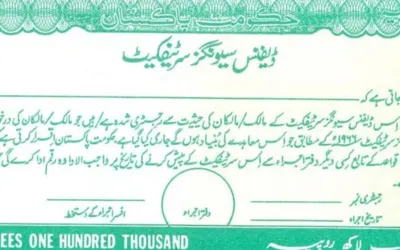 حکومت پاکستان
ڈیفنس سیونگز سرٹیفکیٹ
جاتی ہے کہ
اس ڈیفنس سیونگز سرٹیفکیٹ کے مالک/مالکان کی حیثیت سے رجسٹری شدہ ہے/ہیں جو مالک/مالکان کی
۱۹۶۶ء کے مطابق جو اس معاہدے کی بنیاد ہوں گے جاری کیا گیا ہے۔ حکومت پاکستان اقرار کرتی ہے
قواعد کے تابع کسی دیگر دفتر اجراء سے اس سرٹیفکیٹ کے پیش کرنے کی تاریخ پر واجب الادا وہ رقم ادا کرے گی
رجسٹری نمبر
تاریخ اجراء
دفتر اجراء
افسر اجراء کے دستخط
EES ONE HUNDRED THOUSAND
ایک لاکھ روپیہ